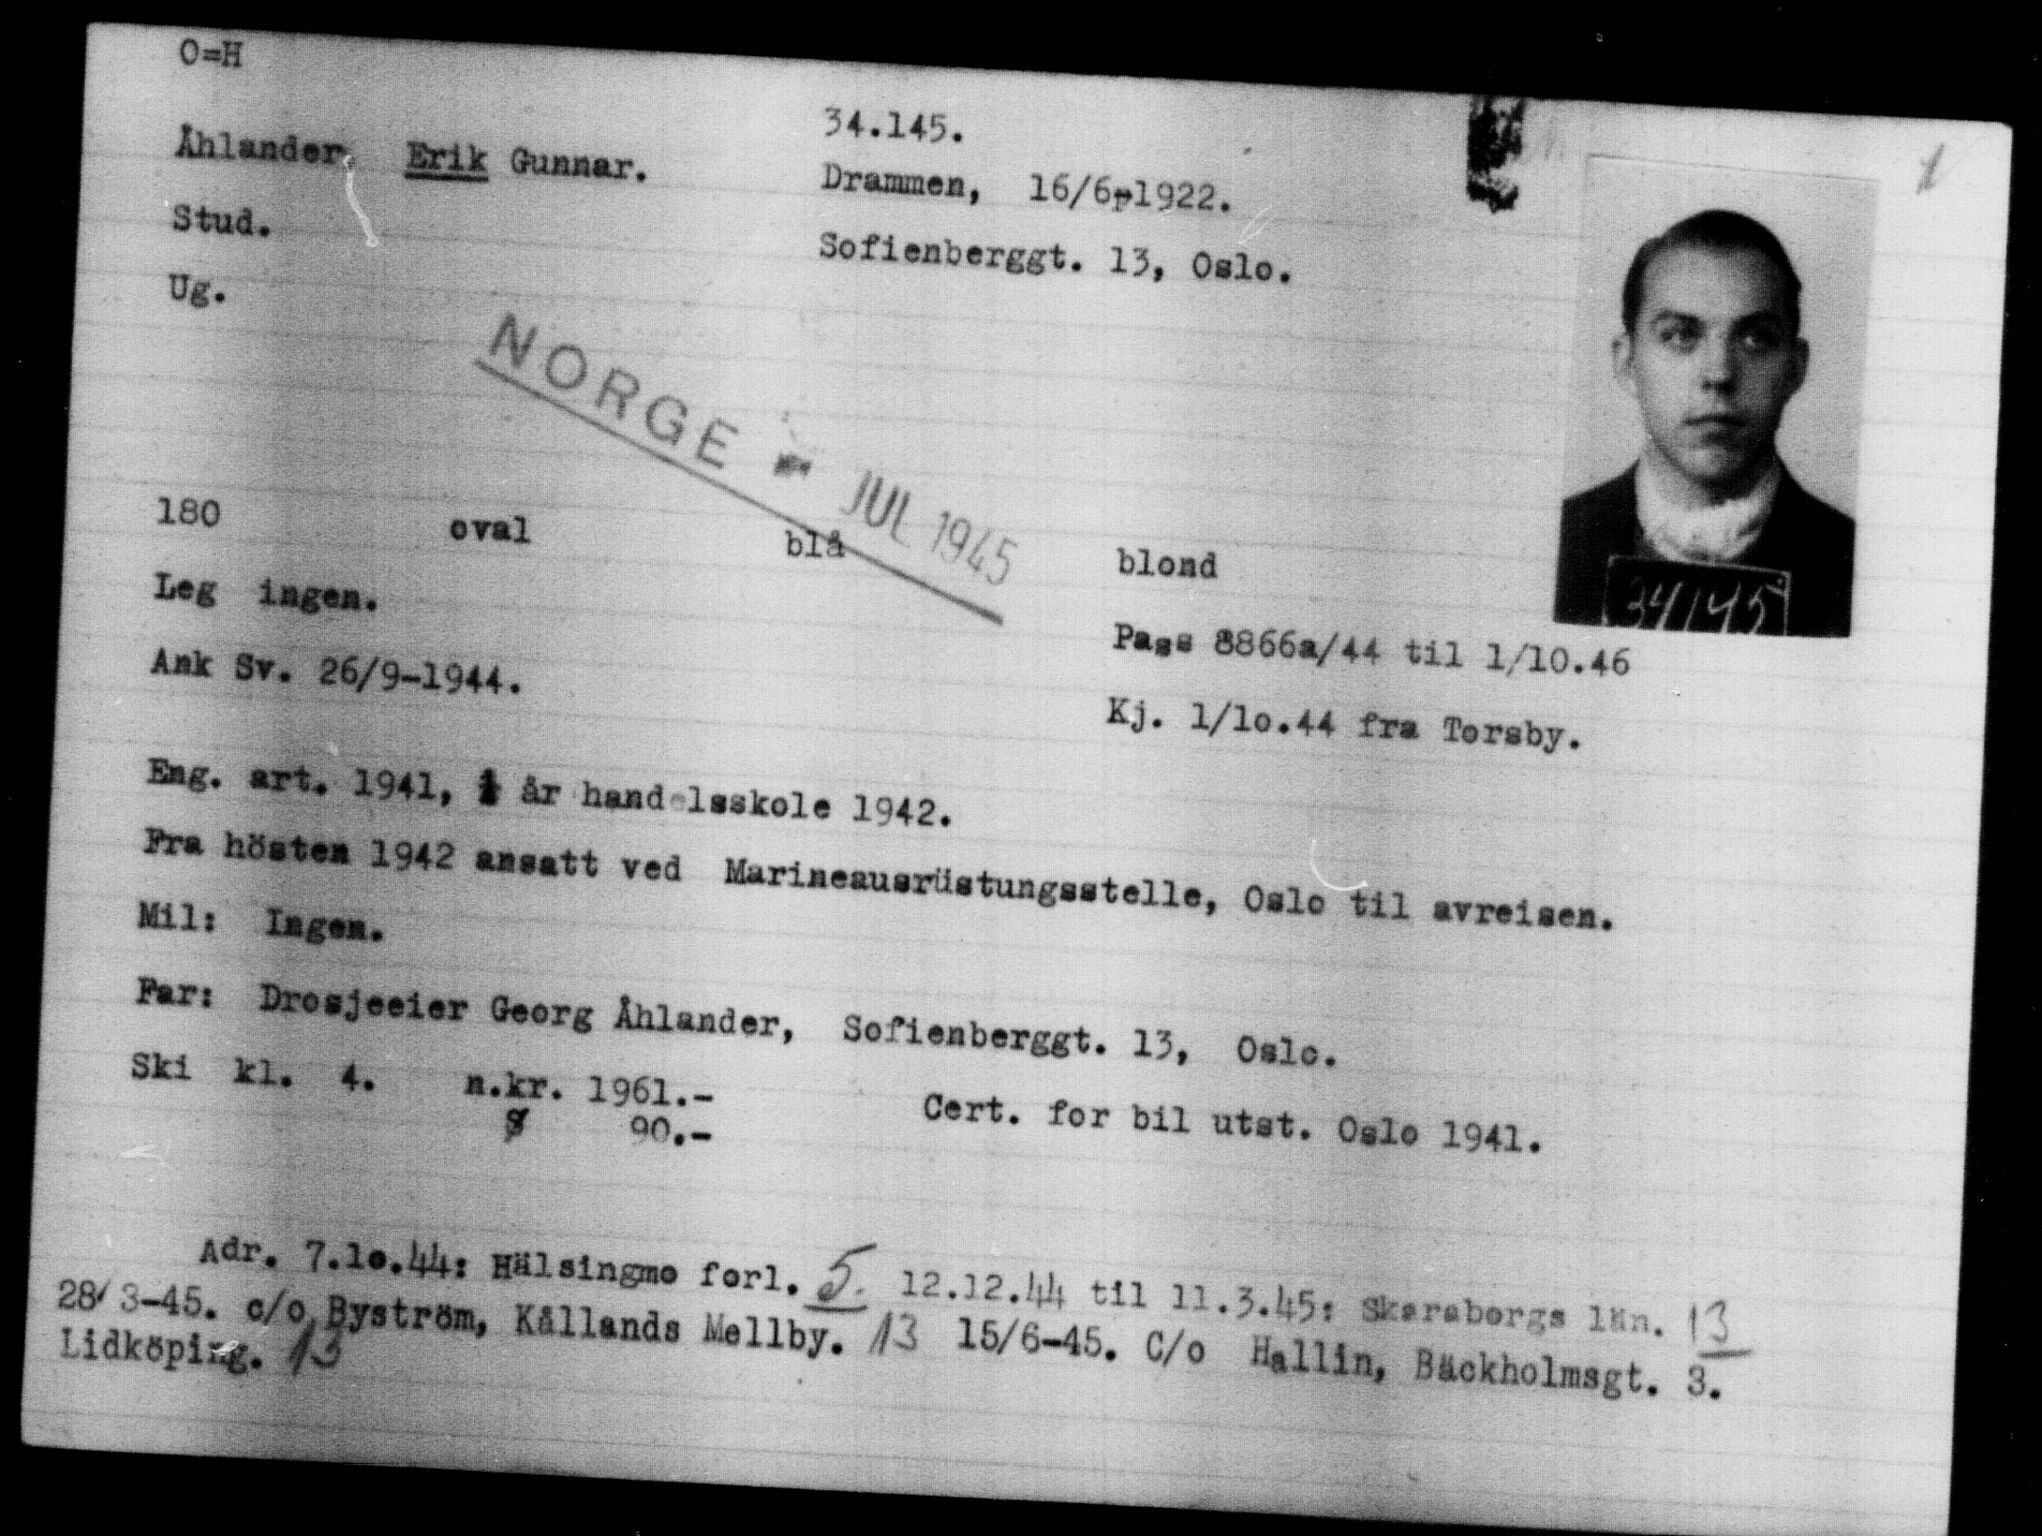 O=H
34.145.
Åhlander, Erik Gunnar.
Drammen, 16/6-1922.
Stud.
Sofienberggt. 13, Oslo.
Ug.
NORGE - JUL 1945
180 oval blå blond
34145
Leg ingen.
Pass 8866a/44 til 1/10.46
Ank Sv. 26/9-1944.
Kj. 1/10.44 fra Torsby.
Eng. art. 1941, år handelsskole 1942.
Fra hösten 1942 ansatt ved Marineausrüstungsstelle, Oslo til avreisen.
Mil: Ingen.
Far: Drosjeeier Georg Åhlander, Sofienberggt. 13, Oslo.
Ski kl. 4. n.kr. 1961.- Cert. for bil utst. Oslo 1941.
90.-
Adr. 7.10.44: Hälsingmo forl. 5. 12.12.44 til 11.3.45: Skaraborgs län. 13
28/3-45. c/o Byström, Kållands Mellby. 13 15/6-45. C/o Hallin, Bäckholmsgt. 3.
Lidköping. 13